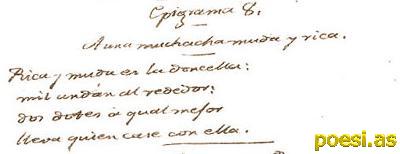 Epigrama 8.
A una muchacha muda y rica.
Rica y muda es la doncella:
mil andan al rededor:
dos dotes à qual mejor
lleva quien case con ella.
poesi.as